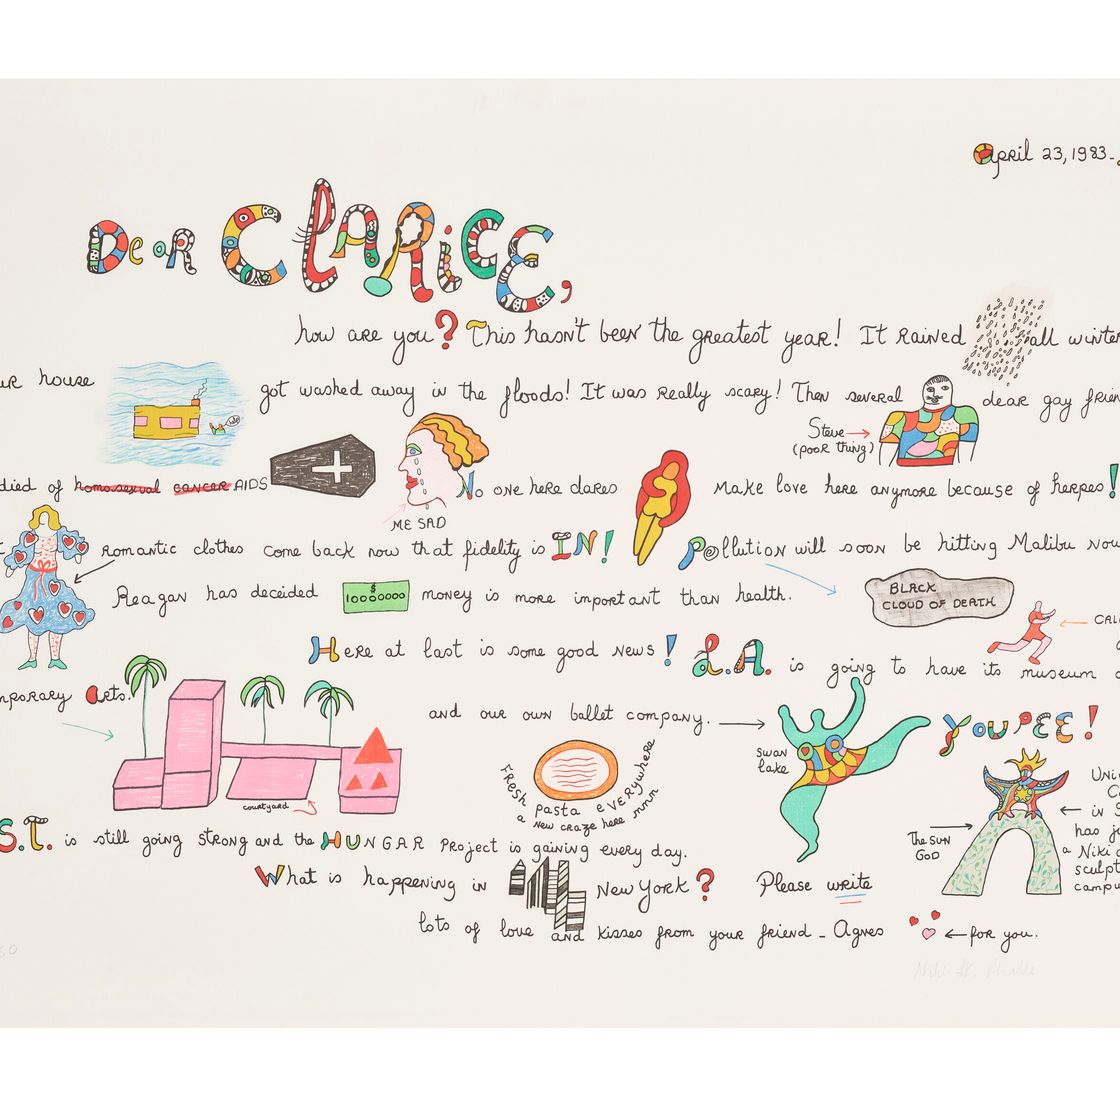 April 23, 1983-
Dear CLARICE,
how are you? This hasn't been the greatest year! It rained all winter
ur house got washed away in the floods! It was really scary! Then several dear gay frien
Help
Steve →
(poor thing)
died of homosexual cancer AIDS No one here dares make love here anymore because of herpes!
ME SAD
t Romantic clothes come back now that fidelity is IN! Pollution will soon be hitting Malibu now
Reagan has decided $ 10000000 money is more important than health.
BLACK
CLOUD OF DEATH
← CAL
Here at last is some good news! L.A. is going to have its museum o
mporary Arts. and our own ballet company. → YOUPEE!
swan
lake
courtyard
FRESH pasta eVERYwhere
a new craze here mmm
The SUN →
GOD
Uni
C
← in S
has j
a Niki d
sculpt
campu
S.T. is still going strong and the HUNGAR Project is gaining every day.
What is happening in New York? Please write
lots of love and kisses from your friend - Agnes ← for you.